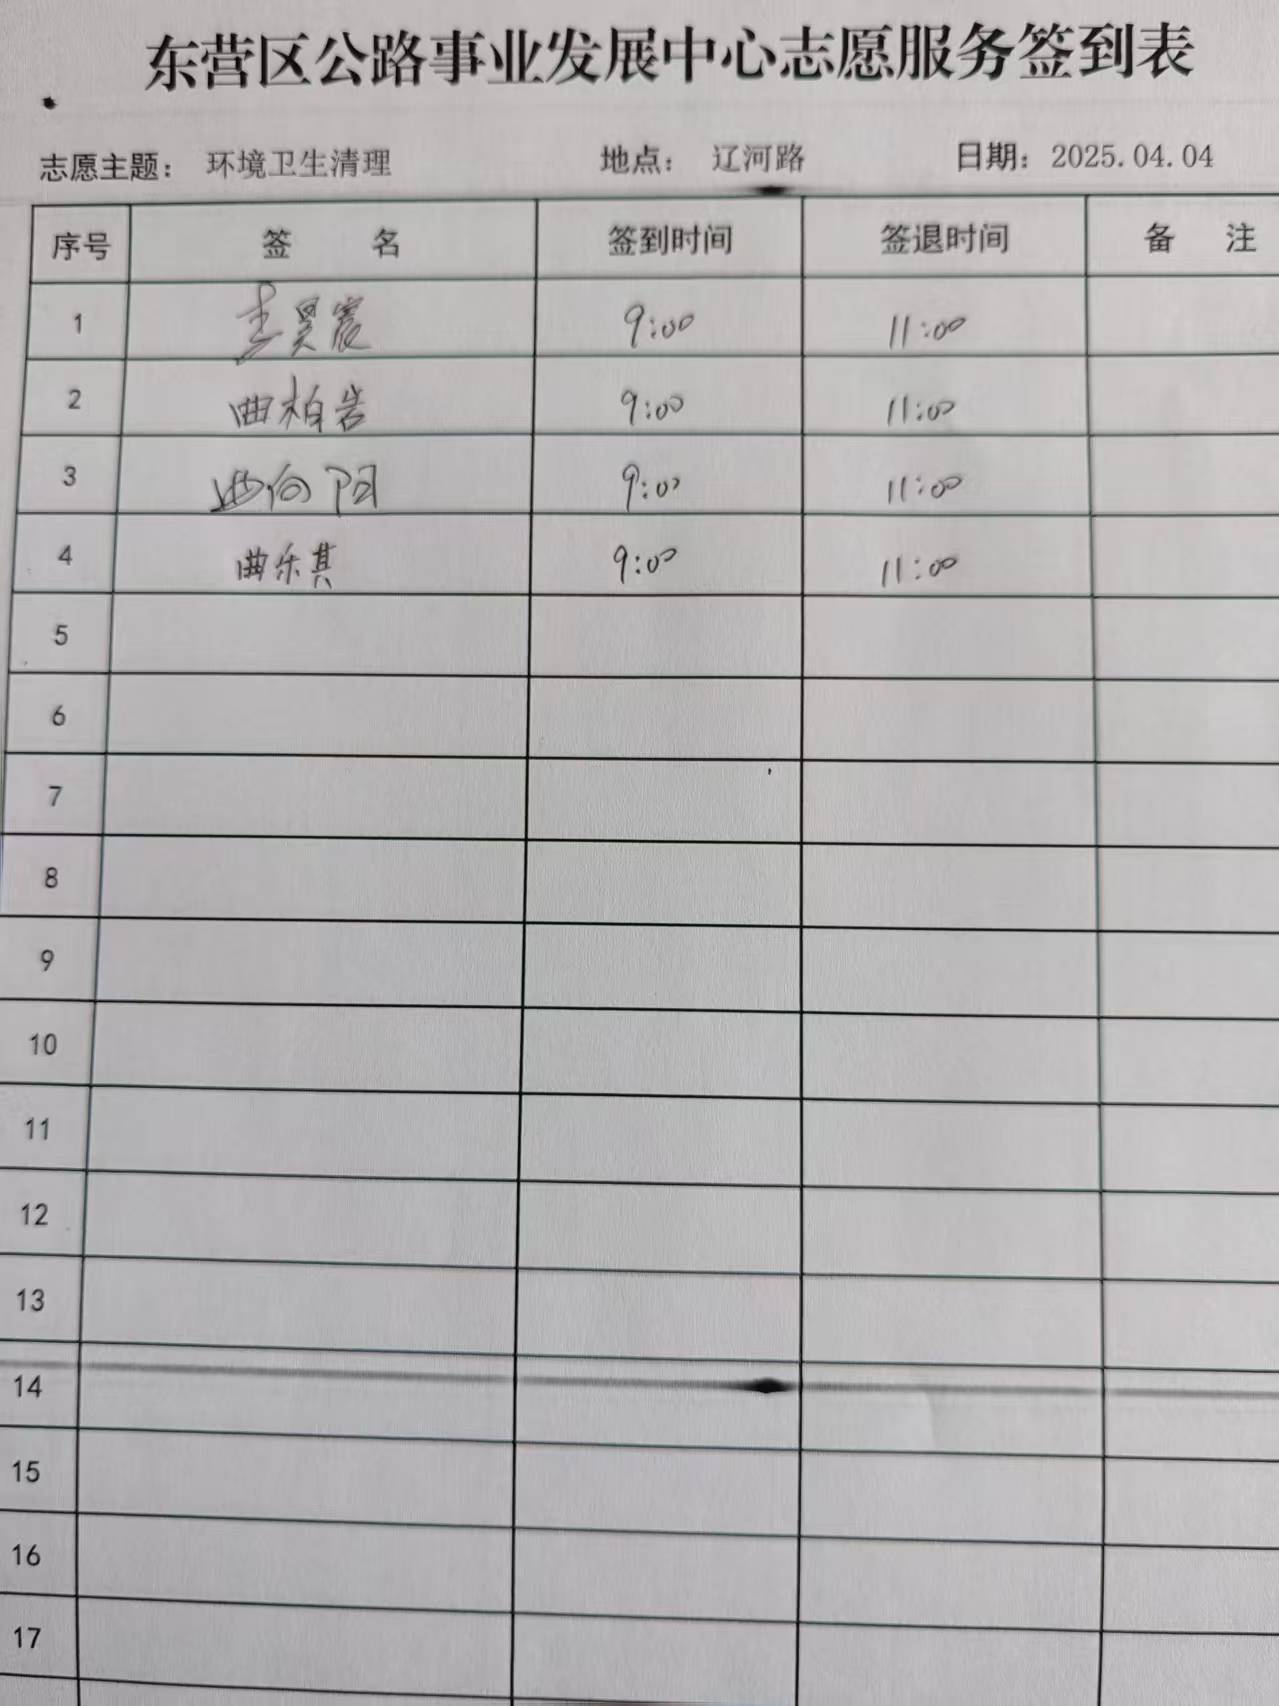 东营区公路事业发展中心志愿服务签到表
志愿主题： 环境卫生清理 地点： 辽河路 日期：2025.04.04
序号 签 名 签到时间 签退时间 备 注
1 昊宸 9:00 11:00
2 曲柏岩 9:00 11:00
3 曲向阳 9:00 11:00
4 曲乐其 9:00 11:00
5
6
7
8
9
10
11
12
13
14
15
16
17